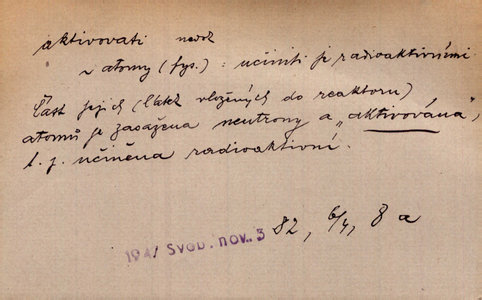 aktivovati nedok
~ atomy (fys.) : učiniti je radioaktivními
Část jejich (látek vložených do reaktoru)
atomů je zasažena neutrony a „aktivována",
t. j. učiněna radioaktivní.
194/ Svob. nov. 3 82, 6/4, 8 a